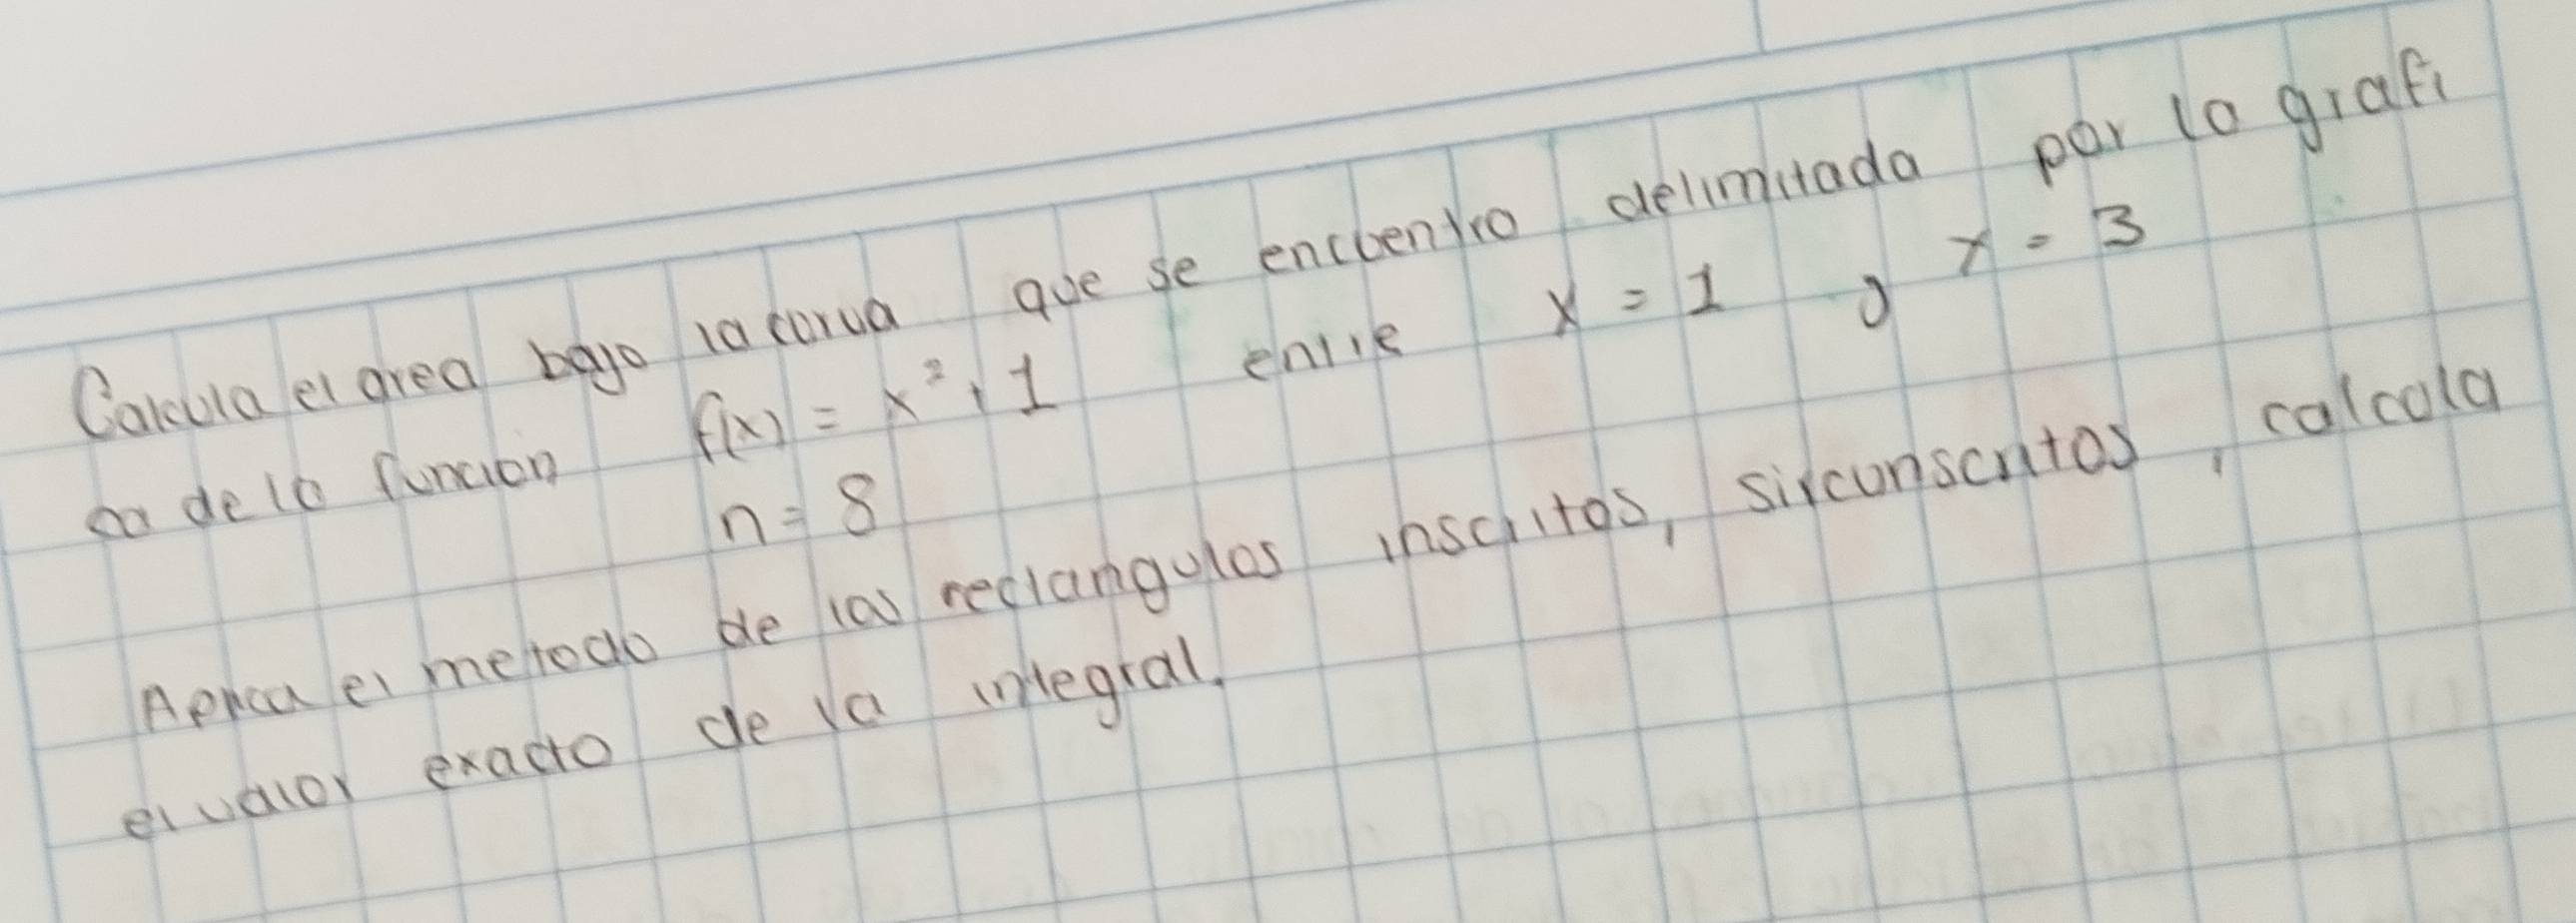 Calcula el area bajo la curva que se encuentra delimitada por la grafi
ca de la funcion f(x) = x² + 1 entre x = 1 y x = 3
n = 8
Aplica el metodo de los rectangulos inscritos, sircunscritos, calcula
el valor exacto de la integral.